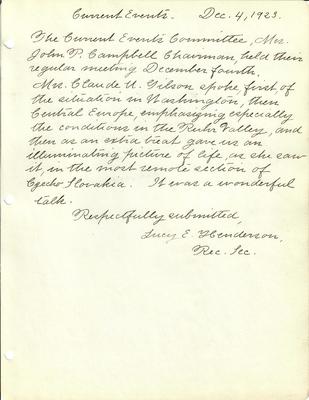 Current Events. Dec. 4, 1923.
The Current Events Committee, Mrs.
John P. Campbell Chairman, held their
regular meeting December fourth.
Mrs. Claude U. Gilson spoke, first of
the situation in Washington, then
Central Europe, emphasizing especially
the conditions in the Ruhr Valley, and
then as an extra treat gave us an
illuminating picture of life, as she saw
it, in the most remote section of
Czecho Slovakia. It was a wonderful
talk.
Respectfully submitted,
Lucy E. Henderson,
Rec. Sec.